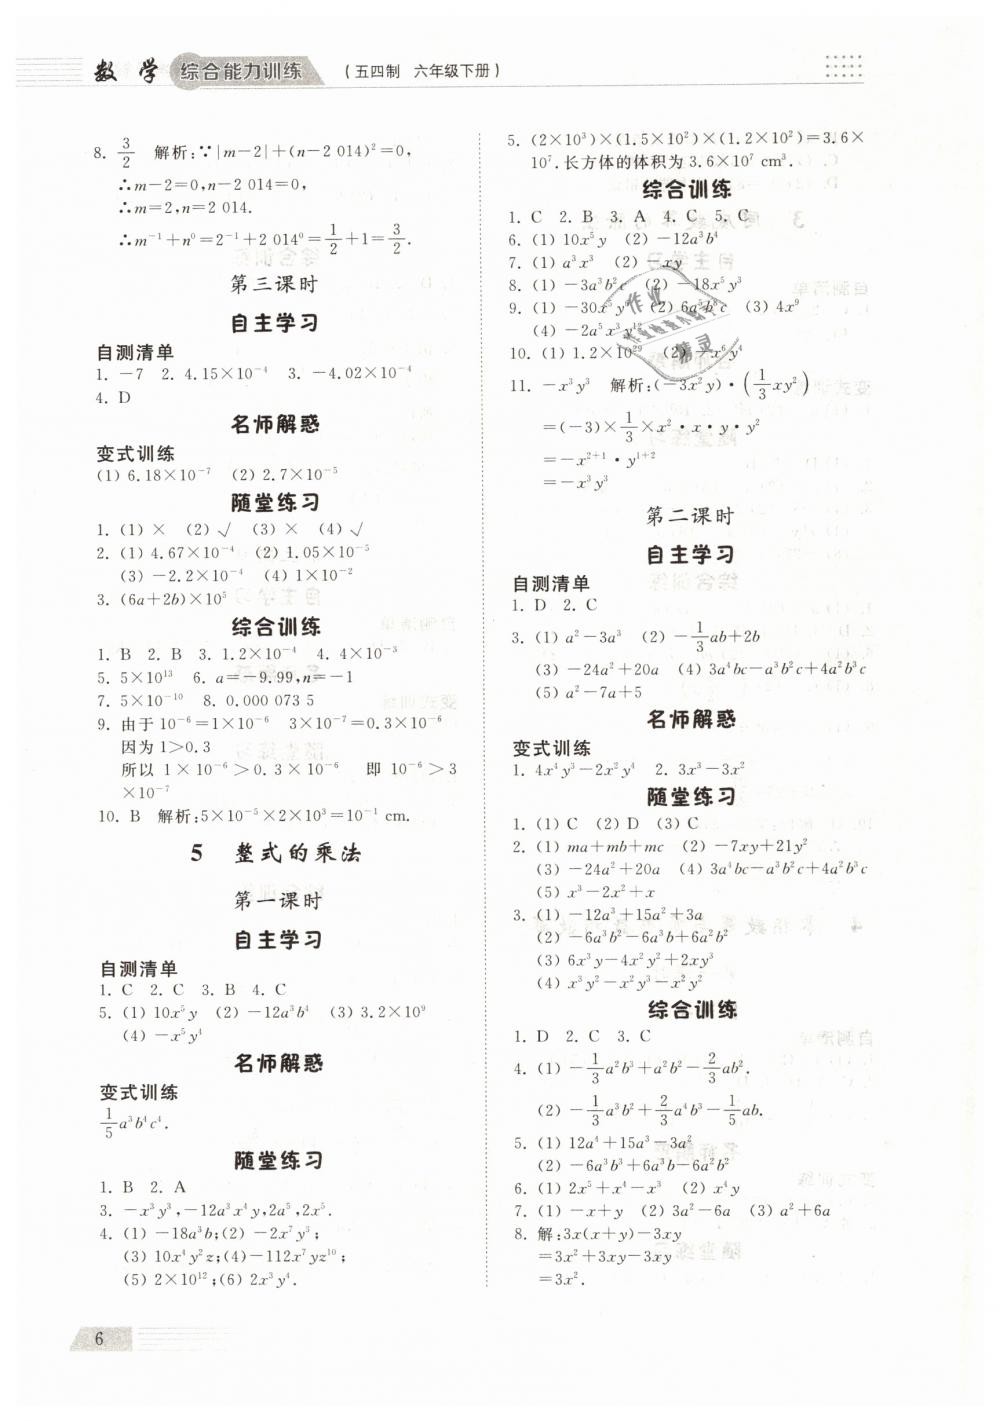 数学 综合能力训练 (五四制 六年级下册)
8. 3/2 解析:∵|m-2|+(n-2 014)²=0,
∴m-2=0,n-2 014=0,
∴m=2,n=2 014.
∴m⁻¹+n⁰=2⁻¹+2 014⁰=1/2+1=3/2.
第三课时
自主学习
自测清单
1. -7 2. 4.15×10⁻⁴ 3. -4.02×10⁻⁴
4. D
名师解惑
变式训练
(1) 6.18×10⁻⁷ (2) 2.7×10⁻⁵
随堂练习
1. (1) × (2) √ (3) × (4) √
2. (1) 4.67×10⁻⁴ (2) 1.05×10⁻⁵
(3) -2.2×10⁻⁴ (4) 1×10⁻²
3. (6a+2b)×10⁵
综合训练
1. B 2. B 3. 1.2×10⁻⁴ 4. 4×10⁻³
5. 5×10¹³ 6. a=-9.99,n=-1
7. 5×10⁻¹⁰ 8. 0.000 073 5
9. 由于10⁻⁶=1×10⁻⁶ 3×10⁻⁷=0.3×10⁻⁶
因为 1>0.3
所以 1×10⁻⁶>0.3×10⁻⁶ 即 10⁻⁶>3
×10⁻⁷
10. B 解析:5×10⁻⁵×2×10³=10⁻¹ cm.
5 整式的乘法
第一课时
自主学习
自测清单
1. C 2. C 3. B 4. C
5. (1) 10x⁵y (2) -12a³b⁴ (3) 3.2×10⁹
(4) -x⁵y⁴
名师解惑
变式训练
1/5a³b⁴c⁴.
随堂练习
1. B 2. A
3. -x³y³,-12a³x⁴y,2a⁵,2x⁵.
4. (1) -18a³b;(2) -2x⁷y³;
(3) 10x⁴y²z;(4)-112x⁷yz¹⁰;
(5) 2×10¹²;(6) 2x³y⁴.
5. (2×10³)×(1.5×10²)×(1.2×10²)=3.6×
10⁷.长方体的体积为 3.6×10⁷ cm³.
综合训练
1. C 2. B 3. A 4. C 5. C
6. (1) 10x⁵y (2) -12a³b⁴
7. (1) a³x³ (2) -xy
8. (1) -3a³b²c (2) -18x⁵y³
9. (1) -30x⁵y⁶ (2) 6a⁵b⁸c (3) 4x⁹
(4) -2a⁵x³y¹²
10. (1) 1.2×10²⁹ (2) -x⁶y⁴
11. -x³y³ 解析:(-3x²y)·(1/3xy²)
=(-3)×1/3×x²·x·y·y²
=-x²⁺¹·y¹⁺²
=-x³y³
第二课时
自主学习
自测清单
1. D 2. C
3. (1) a²-3a³ (2) -1/3ab+2b
(3) -24a²+20a (4) 3a⁴bc-a³b²c+4a²b³c
(5) a²-7a+5
名师解惑
变式训练
1. 4x⁴y³-2x²y⁴ 2. 3x³-3x²
随堂练习
1. (1) C (2) D (3) C
2. (1) ma+mb+mc (2) -7xy+21y²
(3) -24a²+20a (4) 3a⁴bc-a³b²c+4a²b³c
(5) x³-2x²+x
3. (1) -12a³+15a²+3a
(2) -6a³b²-6a³b+6a²b²
(3) 6x³y-4x²y²+2xy³
(4) x³y²-x²y³-x²y²
综合训练
1. D 2. C 3. C
4. (1) -1/3a²b³+a²b²-2/3ab².
(2) -1/3a³b²+2/3a⁴b³-1/5ab.
5. (1) 12a⁴+15a³-3a²
(2) -6a³b³+6a³b-6a²b²
6. (1) 2x⁵+x⁴-x³ (2) x⁴y
7. (1) -x+y (2) 3a²-6a (3) a²+6a
8. 解:3x(x+y)-3xy
=3x²+3xy-3xy
=3x².
6